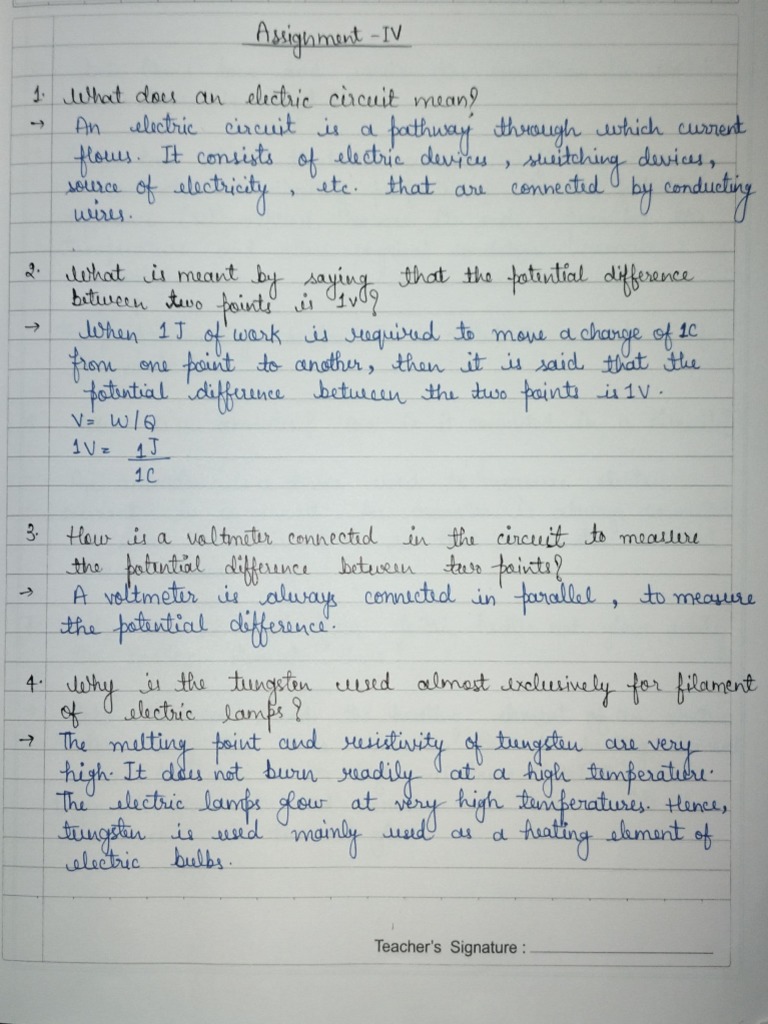 Assignment - IV
1. What does an electric circuit mean?
→ An electric circuit is a pathway through which current
flows. It consists of electric devices, switching devices,
source of electricity, etc. that are connected by conducting
wires.
2. What is meant by saying that the potential difference
between two points is 1v?
→ When 1J of work is required to move a charge of 1C
from one point to another, then it is said that the
potential difference between the two points is 1V.
V= W/Q
1V= 1J
1C
3. How is a voltmeter connected in the circuit to measure
the potential difference between two points?
→ A voltmeter is always connected in parallel, to measure
the potential difference.
4. Why is the tungsten used almost exclusively for filament
of electric lamps?
→ The melting point and resistivity of tungsten are very
high. It does not burn readily at a high temperature.
The electric lamps glow at very high temperatures. Hence,
tungsten is used mainly used as a heating element of
electric bulbs.
Teacher's Signature :